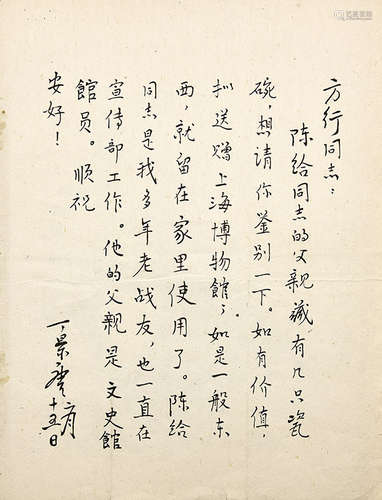 方行同志：
陈给同志的父親藏有几只瓷
碗，想請你鉴别一下。如有价值，
拟送赠上海博物館；如是一般东
西，就留在家里使用了。陈给
同志是我多年老战友，也一直在
宣传部工作。他的父親是文史館
館員。順祝
安好！
丁景唐
二月
十五日